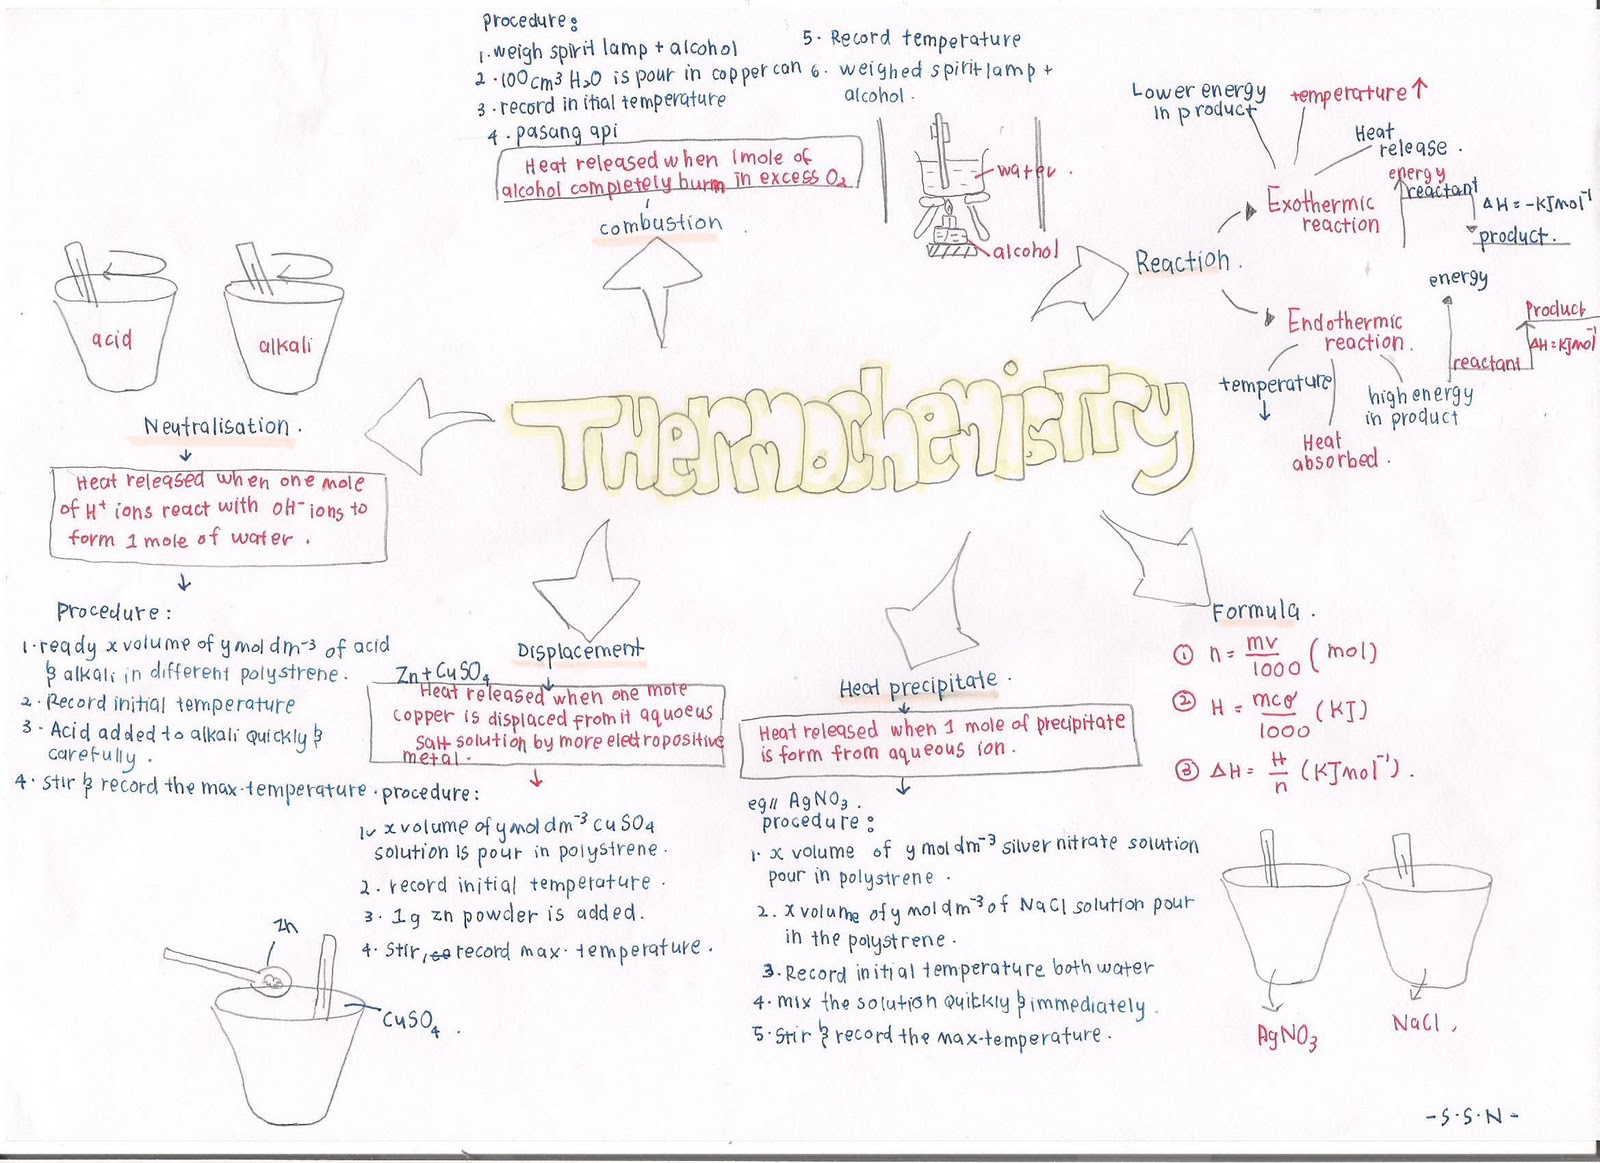 procedure:
1. weigh spirit lamp + alcohol
2. 100cm³ H₂O is pour in copper can
3. record initial temperature
4. pasang api
5. Record temperature
6. weighed spirit lamp +
alcohol.
Heat released when 1mole of
alcohol completely burn in excess O₂
combustion
water.
alcohol
Lower energy
in product
temperature ↑
Heat
release.
Exothermic
reaction
energy
reactant
ΔH = -KJmol⁻¹
product.
Reaction.
Endothermic
reaction.
temperature
↓
Heat
absorbed.
high energy
in product
energy
Product
ΔH = KJmol⁻¹
reactant
THermochemisTry
acid
alkali
Neutralisation.
Heat released when one mole
of H⁺ ions react with OH⁻ ions to
form 1 mole of water.
Procedure:
1. ready x volume of y mol dm⁻³ of acid
& alkali in different polystrene.
2. Record initial temperature
3. Acid added to alkali quickly &
carefully.
4. stir & record the max. temperature.
Displacement
Zn + CuSO₄
Heat released when one mole
copper is displaced from it aquoeus
salt solution by more electropositive
metal.
procedure:
1. x volume of y mol dm⁻³ CuSO₄
solution is pour in polystrene.
2. record initial temperature.
3. 1g zn powder is added.
4. stir, record max. temperature.
Zn
CuSO₄.
Heat precipitate.
Heat released when 1 mole of precipitate
is form from aqueous ion.
eg // AgNO₃.
procedure:
1. x volume of y mol dm⁻³ silver nitrate solution
pour in polystrene.
2. x volume of y mol dm⁻³ of NaCl solution pour
in the polystrene.
3. Record initial temperature both water
4. mix the solution quickly & immediately.
5. stir & record the max-temperature.
Formula.
① n = mv/1000 (mol)
② H = mcθ/1000 (KJ)
③ ΔH = H/n (KJmol⁻¹).
AgNO₃
NaCl.
- S.S.N -